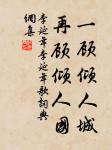 一顾倾人城
再顾倾人国
李延年李延年歌詞典
網集